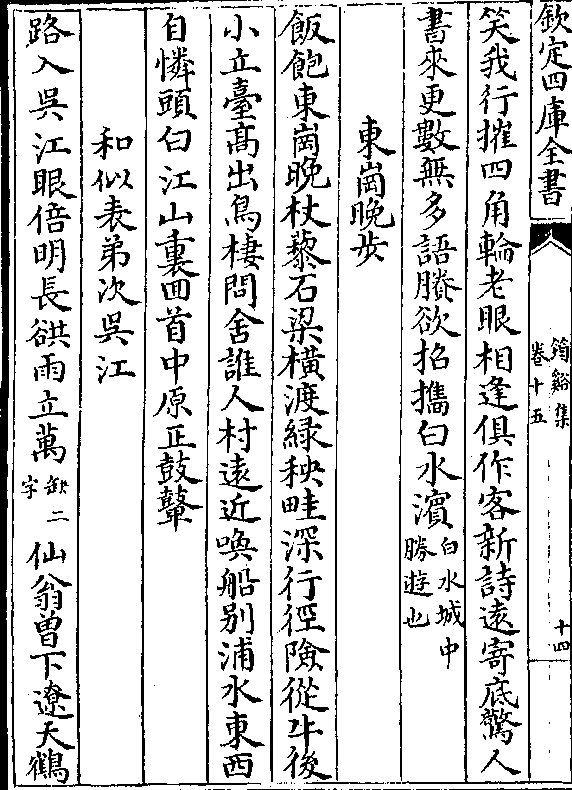 欽定四庫全書
筠谿集
卷十五
十四
笑我行摧四角輪老眼相逢俱作客新詩遠寄底驚人
書來更數無多語賸欲招攜白水濱白水城中勝遊也
東崗晚步
飯飽東崗晚杖藜石梁橫渡綠秧畦深行徑險從牛後
小立臺高出鳥棲問舍誰人村遠近喚船别浦水東西
自憐頭白江山裏回首中原正鼓鼙
和似表弟次吳江
路入吳江眼倍明長谼雨立萬缺二字仙翁曾下遼天鶴